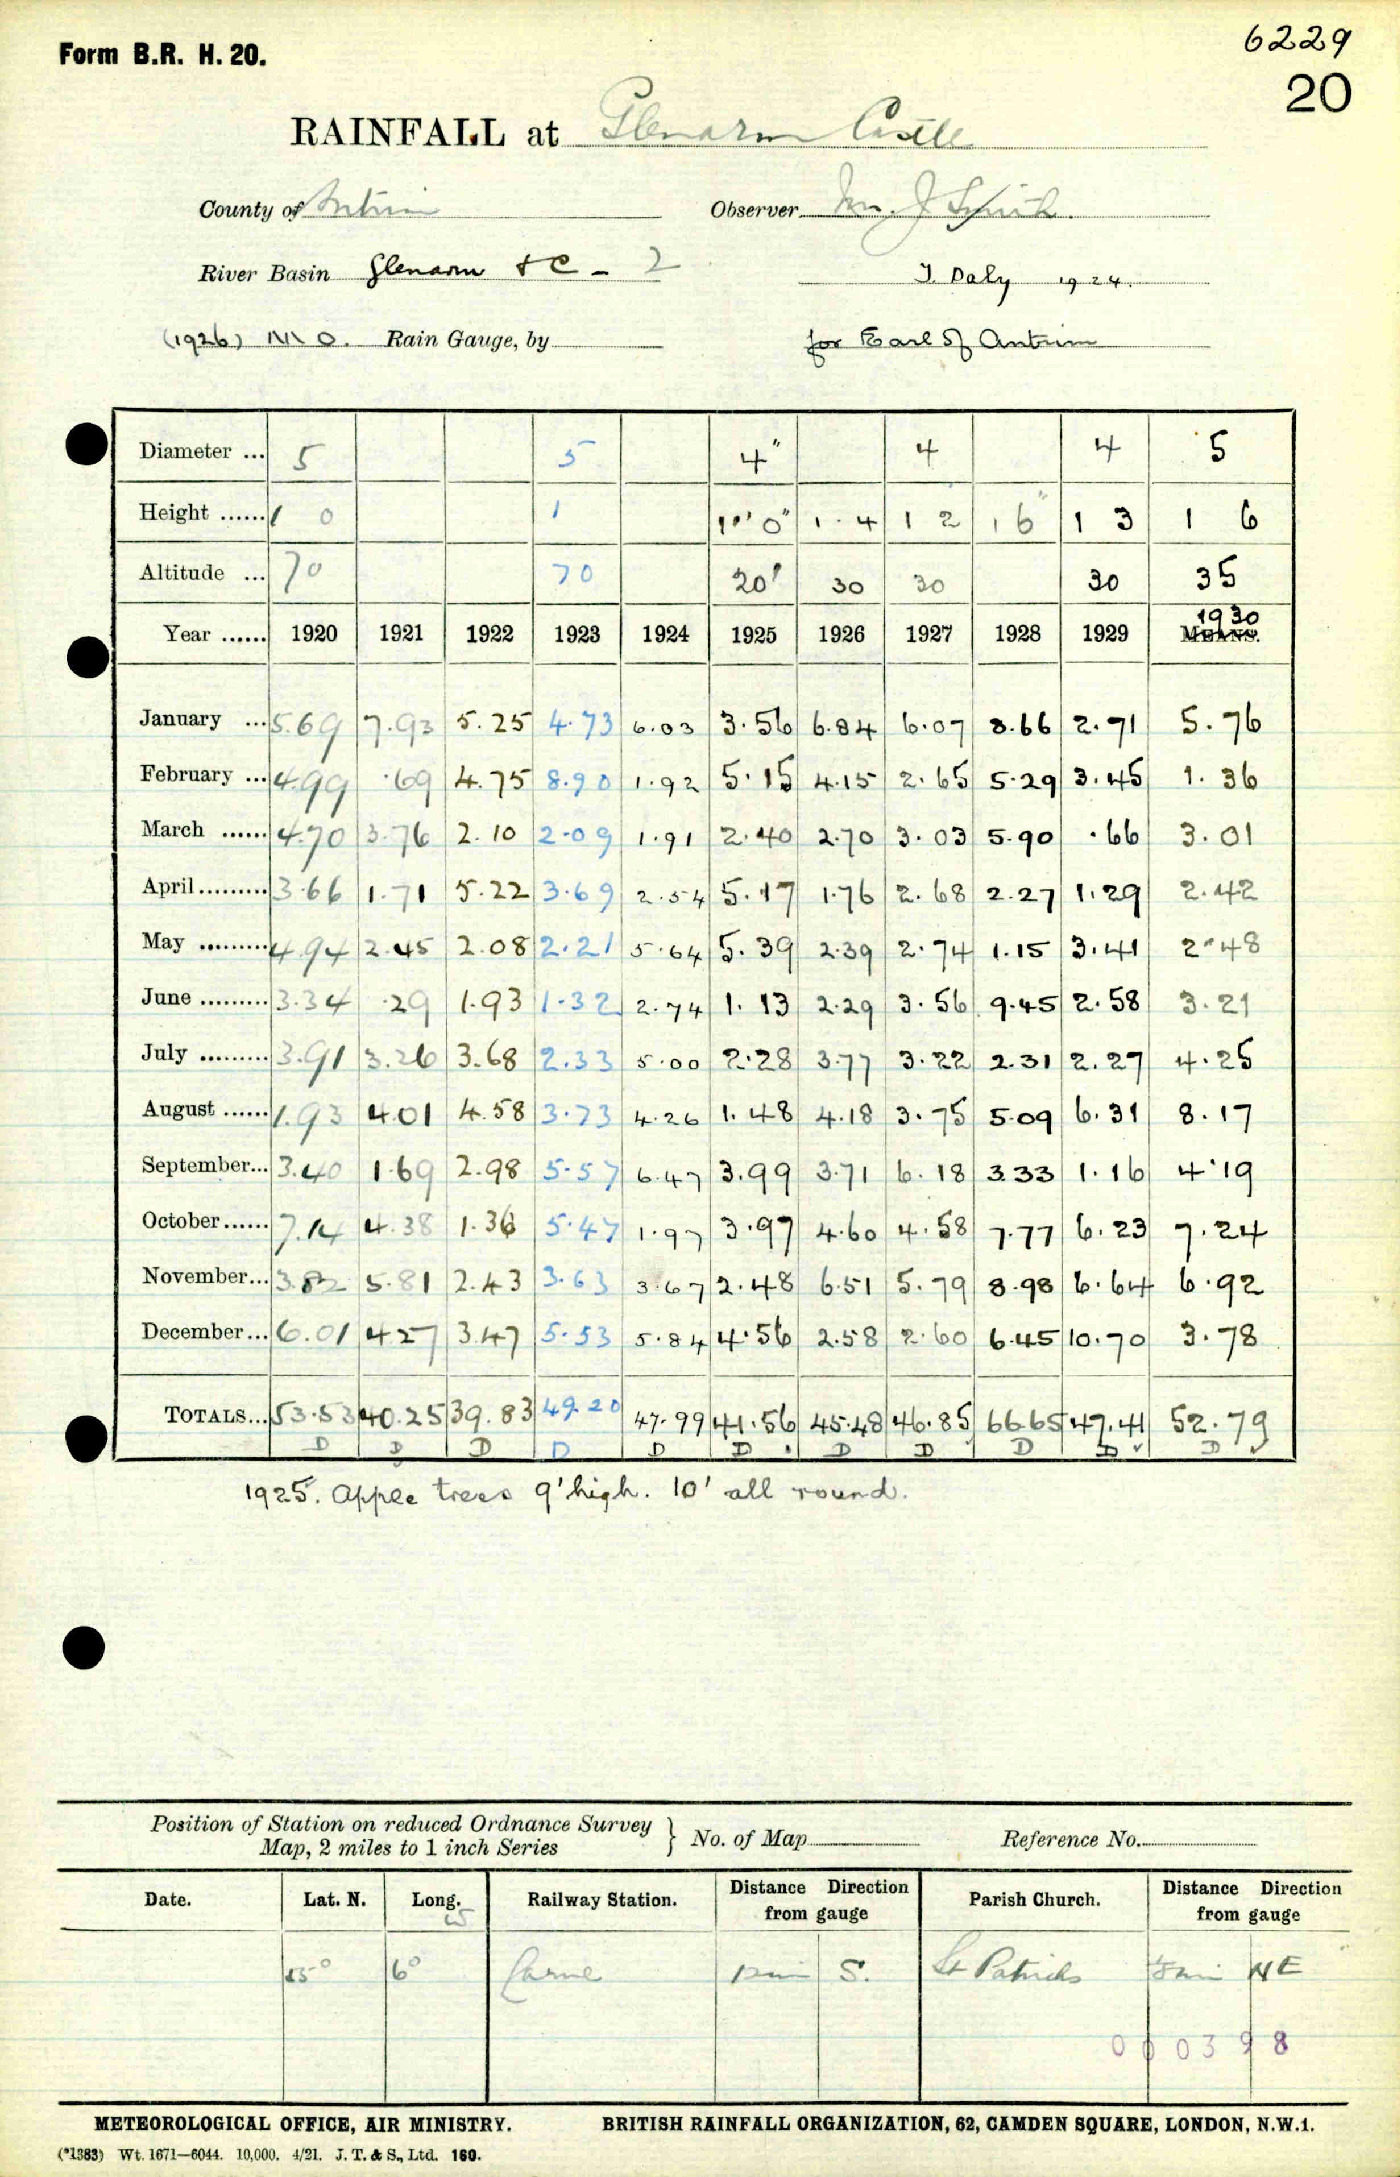 Form B.R. H. 20.
6229
20
RAINFALL at Glenarm Castle
County of Antrim Observer Mr. J Smith
River Basin Glenarm &c - 2 J. Daly 1924.
(1926) M O. Rain Gauge, by for Earl of Antrim
Diameter ... 5 5 4" 4 4 5
Height ...... 1 0 1 1' 0" 1·4 1 2 1 6" 1 3 1 6
Altitude ... 70 70 20' 30 30 30 35
1930
Year ...... 1920 1921 1922 1923 1924 1925 1926 1927 1928 1929 MEANS.
January ... 5.69 7.93 5.25 4.73 6.03 3.56 6.84 6.07 8.66 2.71 5.76
February ... 4.99 .69 4.75 8.90 1.92 5.15 4.15 2.65 5.29 3.45 1.36
March ...... 4.70 3.76 2.10 2.09 1.91 2.40 2.70 3.03 5.90 .66 3.01
April ......... 3.66 1.71 5.22 3.69 2.54 5.17 1.76 2.68 2.27 1.29 2.42
May ......... 4.94 2.45 2.08 2.21 5.64 5.39 2.39 2.74 1.15 3.41 2.48
June ......... 3.34 .29 1.93 1.32 2.74 1.13 2.29 3.56 9.45 2.58 3.21
July ......... 3.91 3.26 3.68 2.33 5.00 2.28 3.77 3.22 2.31 2.27 4.25
August ...... 1.93 4.01 4.58 3.73 4.26 1.48 4.18 3.75 5.09 6.31 8.17
September... 3.40 1.69 2.98 5.57 6.47 3.99 3.71 6.18 3.33 1.16 4.19
October...... 7.14 4.38 1.36 5.47 1.97 3.97 4.60 4.58 7.77 6.23 7.24
November... 3.82 5.81 2.43 3.63 3.67 2.48 6.51 5.79 8.98 6.64 6.92
December... 6.01 4.27 3.47 5.53 5.84 4.56 2.58 2.60 6.45 10.70 3.78
TOTALS... 53.53 40.25 39.83 49.20 47.99 41.56 45.48 46.85 66.65 47.41 52.79
D D D D D D D D D D D
1925. Apple trees 9' high. 10' all round.
Position of Station on reduced Ordnance Survey
Map, 2 miles to 1 inch Series } No. of Map Reference No.
Date. Lat. N. Long. W Railway Station. Distance Direction from gauge Parish Church. Distance Direction from gauge
55° 6° Larne 12 mi S. St Patricks 1/8 mi NE
000398
METEOROLOGICAL OFFICE, AIR MINISTRY. BRITISH RAINFALL ORGANIZATION, 62, CAMDEN SQUARE, LONDON, N.W.1.
(*1383) Wt. 1671—6044. 10,000. 4/21. J. T. & S., Ltd. 160.